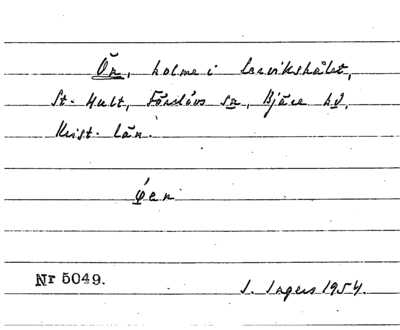 Ön, holme i Servikshålet,
St. Hult, Färlövs sn, Bjäre hd,
Krist. län.
öen
Nr 5049.
J. Ingers 1954.